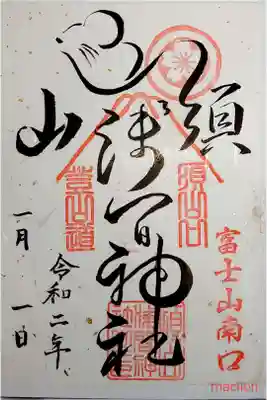 富士山南口
須山
浅間神社
須山口
登山道
令和二年
一月一日
machun